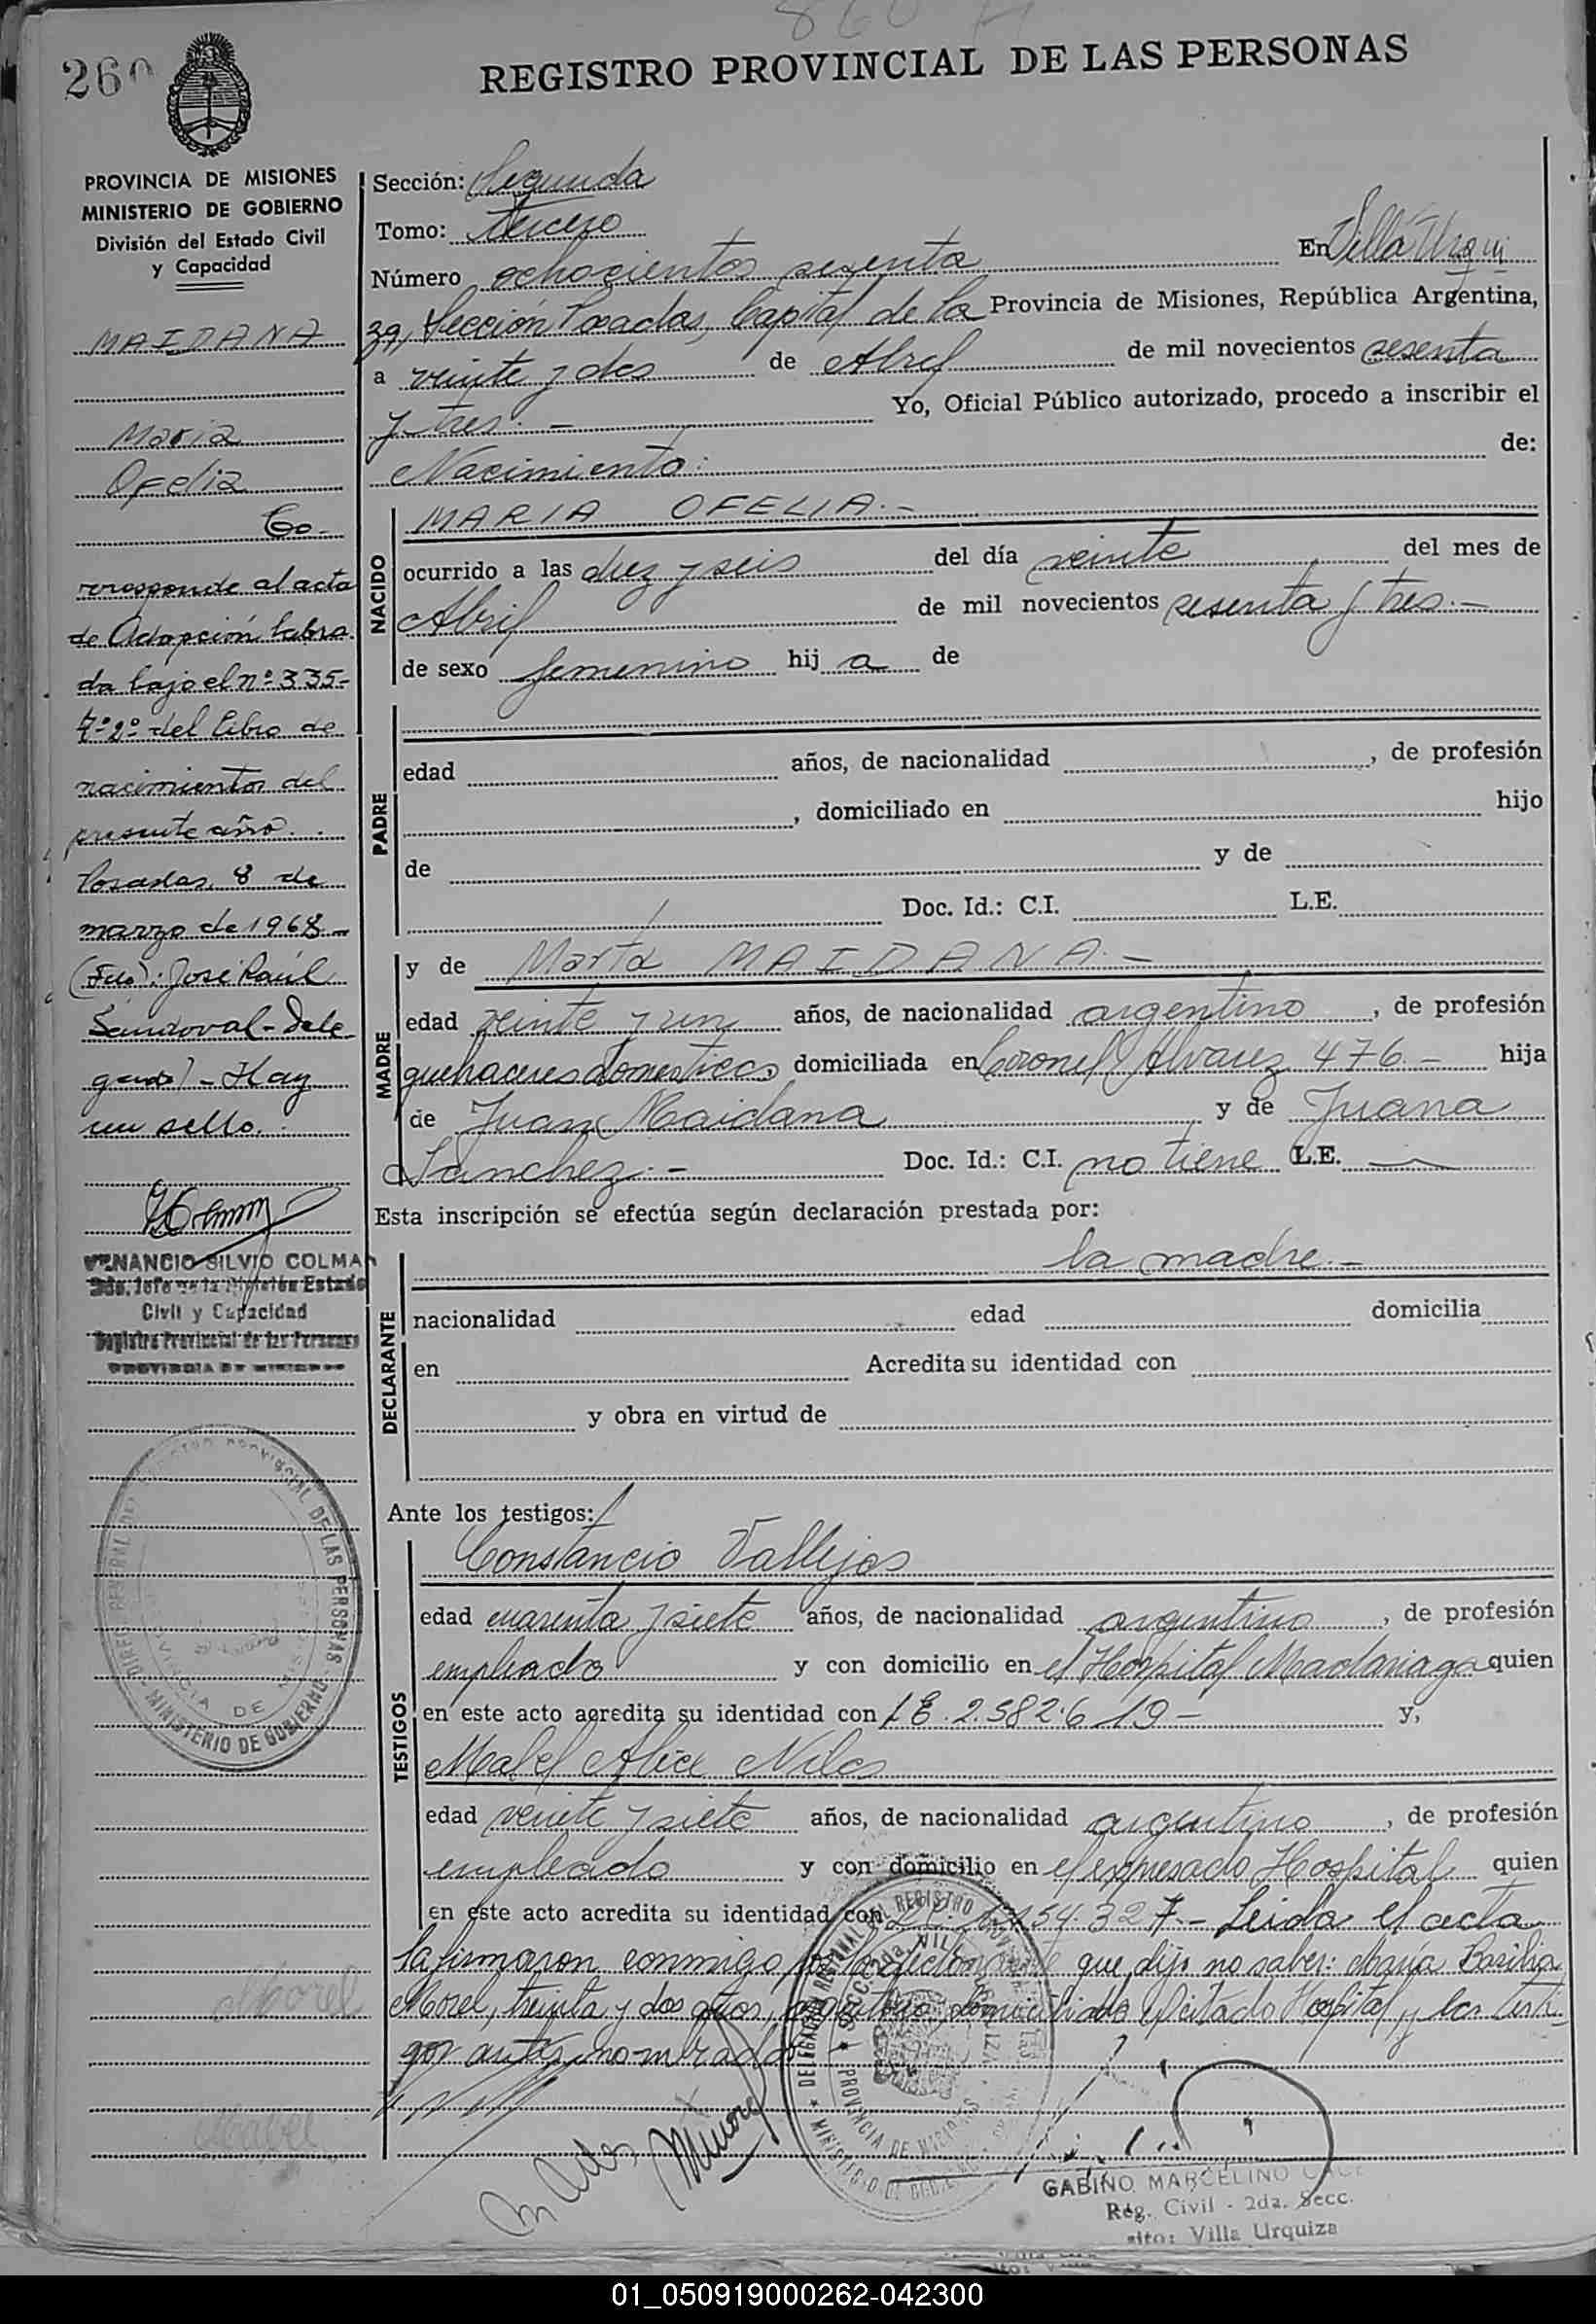 260
REGISTRO PROVINCIAL DE LAS PERSONAS
PROVINCIA DE MISIONES
MINISTERIO DE GOBIERNO
División del Estado Civil
y Capacidad
MAIDANA
Maria
Ofelia
Co-
rresponde al acta
de Adopción labra
da bajo el nº 335-
Tº 2º del libro de
nacimientos del
presente año.
Posadas, 8 de
marzo de 1968
(Fdo): José Raúl
Sandoval - Dele
gado) - Hay
un sello.
VENANCIO SILVIO COLMAN
2do. Jefe de la División Estado
Civil y Capacidad
Registro Provincial de las Personas
PROVINCIA DE MISIONES
REGISTRO PROVINCIAL DE LAS PERSONAS
MINISTERIO DE GOBIERNO
Morel
Mabel
Sección: Segunda
Tomo: tercero
Número ochocientos sesenta En Villa Urqui
za, Sección Posadas, Capital de la Provincia de Misiones, República Argentina,
a veinte y dos de Abril de mil novecientos sesenta
y tres.- Yo, Oficial Público autorizado, procedo a inscribir el
Nacimiento: de:
NACIDO
MARIA OFELIA.-
ocurrido a las diez y seis del día veinte del mes de
Abril de mil novecientos sesenta y tres.-
de sexo femenino hij a de
PADRE
edad años, de nacionalidad , de profesión
, domiciliado en hijo
de y de
Doc. Id.: C.I. L.E.
MADRE
y de Marta MAIDANA.-
edad veinte y un años, de nacionalidad argentino , de profesión
quehaceres domesticos domiciliada en Coronel Alvarez 476.- hija
de Juan Maidana y de Juana
Sanchez.- Doc. Id.: C.I. no tiene L.E.
Esta inscripción se efectúa según declaración prestada por:
DECLARANTE
la madre.-
nacionalidad edad domicilia
en Acredita su identidad con
y obra en virtud de
Ante los testigos:
TESTIGOS
Constancio Vallejos
edad cuarenta y siete años, de nacionalidad argentino , de profesión
empleado y con domicilio en el Hospital Madariaga quien
en este acto acredita su identidad con L E. 2.582.619- y,
Mabel Alice
edad veinte y siete años, de nacionalidad argentino , de profesión
empleado y con domicilio en el expresado Hospital quien
en este acto acredita su identidad con 54.327.- Leida el acta
la firmaron conmigo, que dijo no saber: María Basilia
Morel, treinta y dos años, domiciliada citado Hospital y los testi-
gos antes nombrados
DELEGACION REGIONAL DEL REGISTRO
PROVINCIA DE MISIONES
GABINO MARCELINO
Reg. Civil - 2da. Secc.
sito: Villa Urquiza
01_050919000262-042300